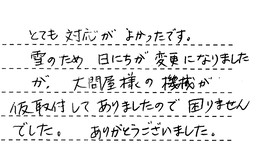 とても対応がよかったです。
雪のため 日にちが変更になりました
が、大問屋様の機械が
仮取付してありましたので困りません
でした。 ありがとうございました。